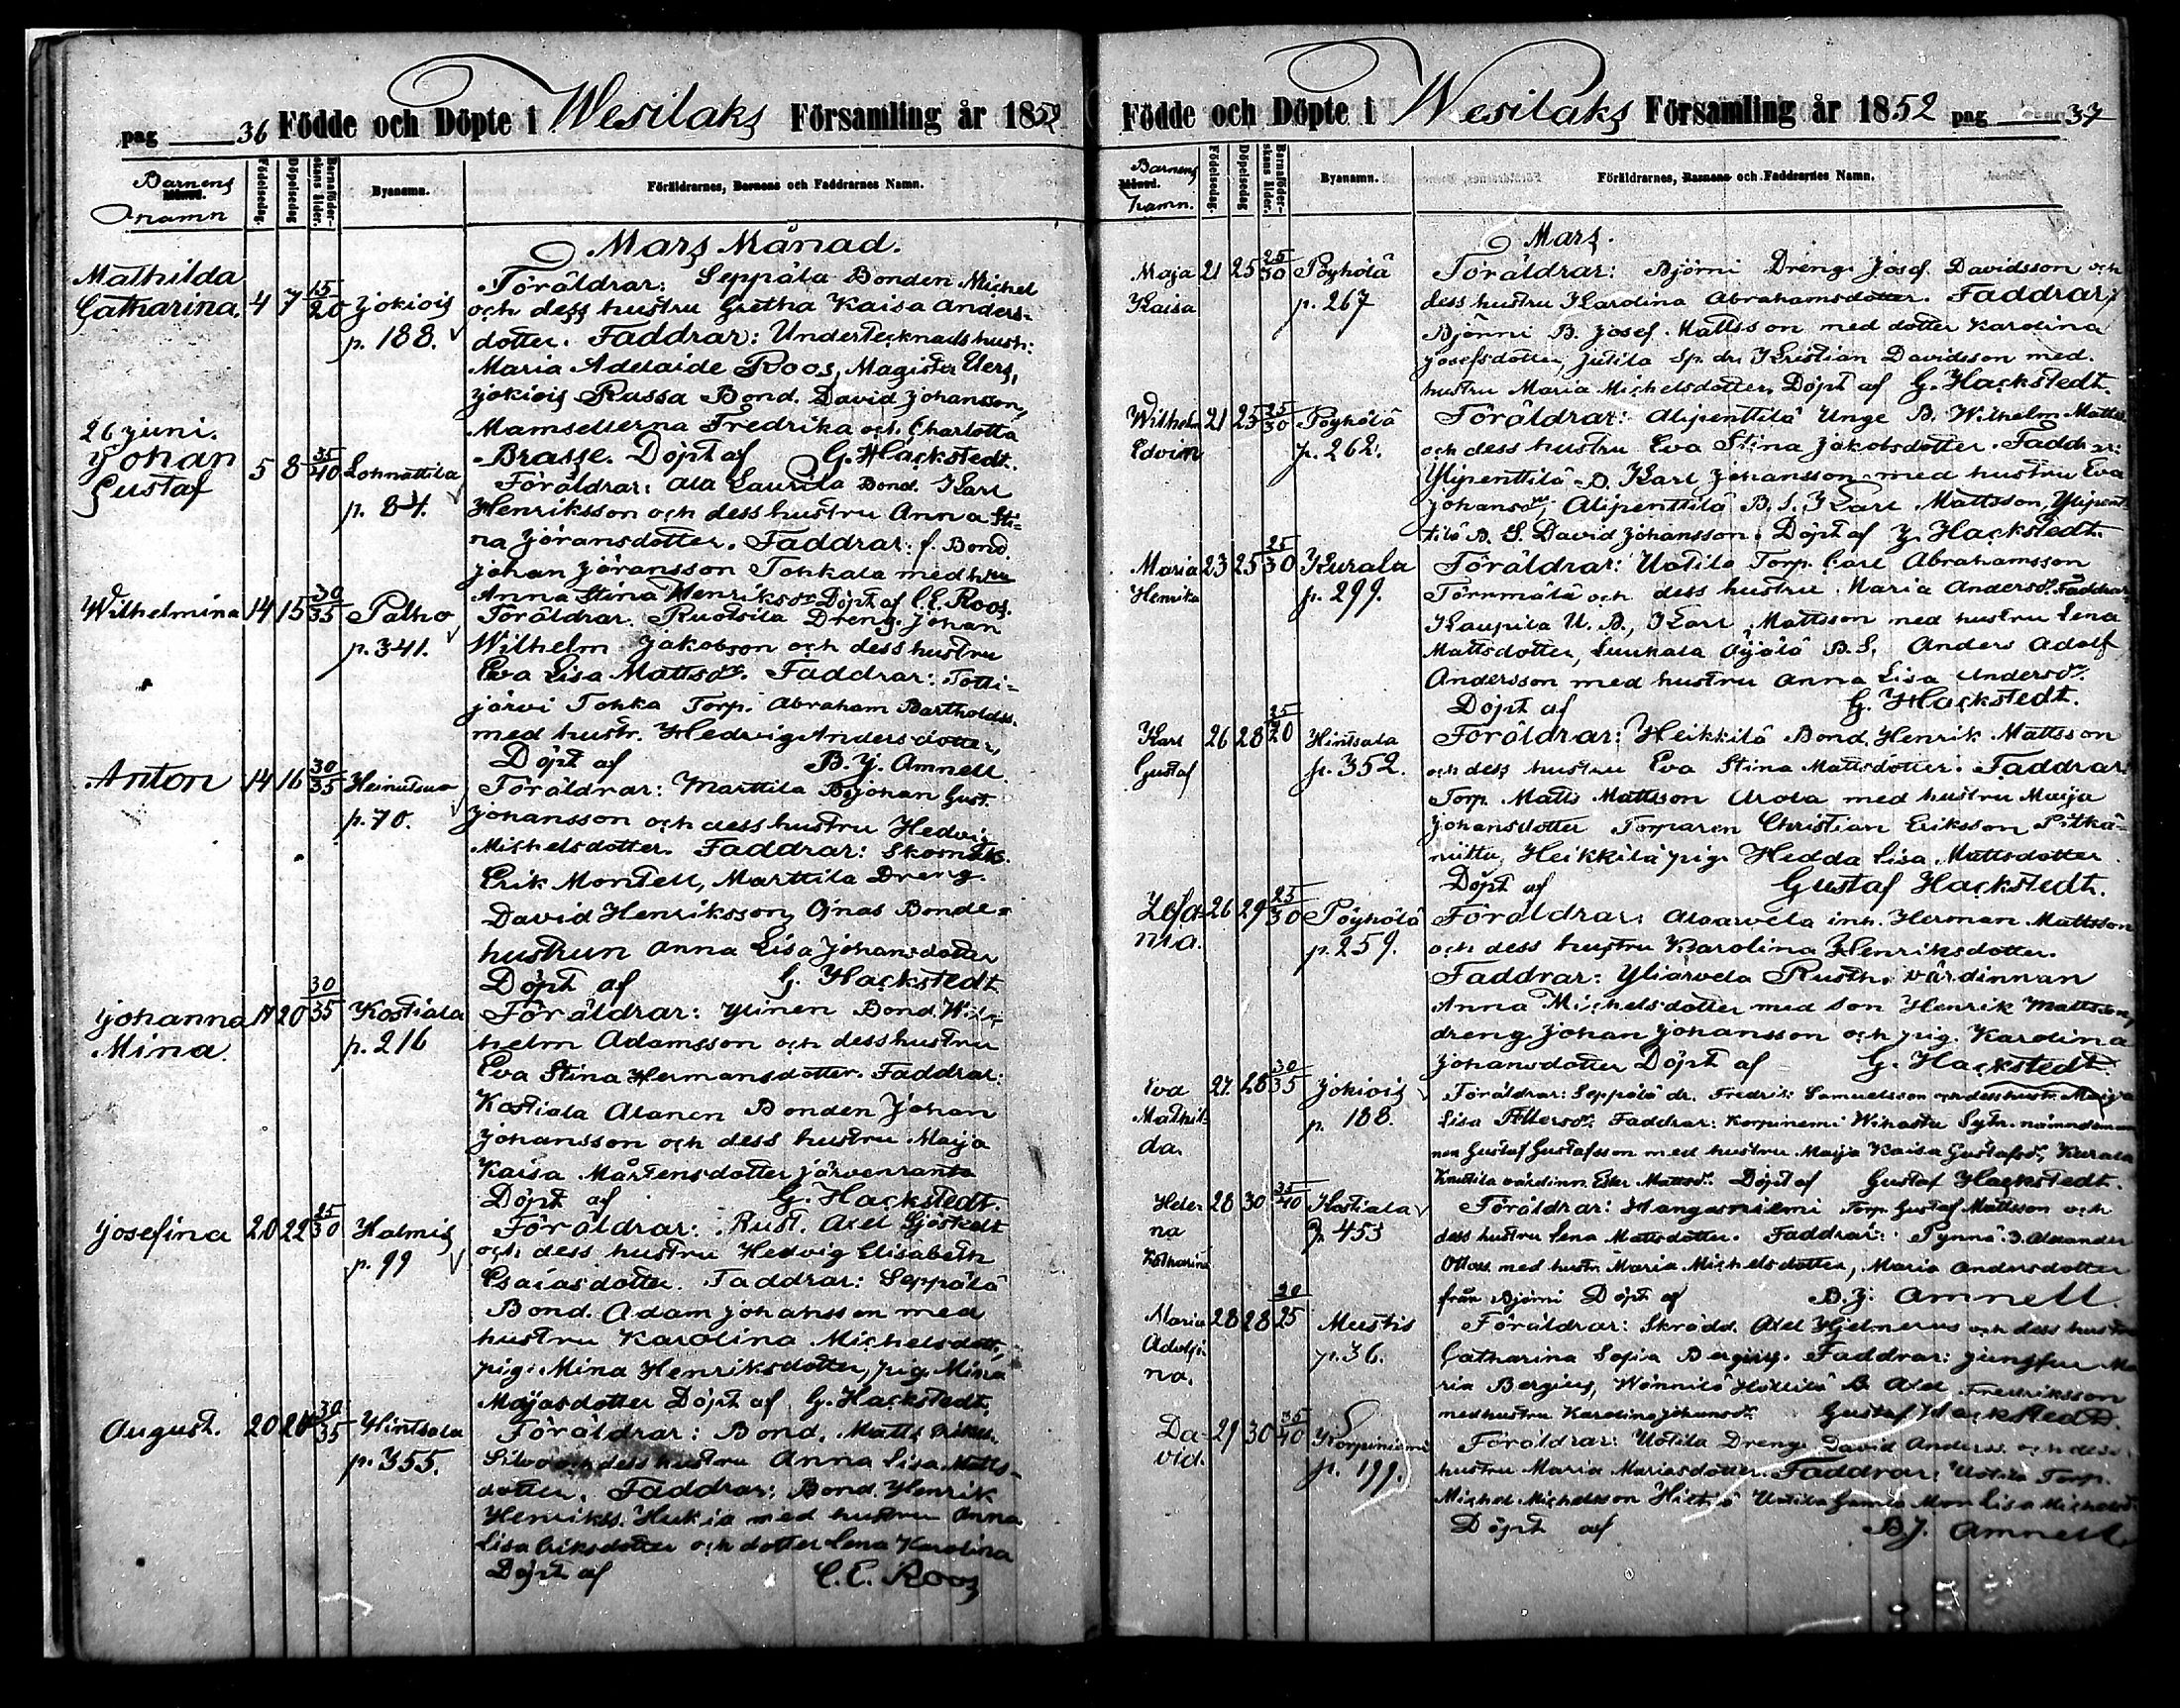 pag 36 Födde och Döpte i Wesilaks Församling år 1852
Barnens
Månad.
namn
Födelsedag.
Döpelsedag
Barnaföder-
skans ålder.
Byanamn.
Föräldrarnes, Barnens och Faddrarnes Namn.
Mars Månad.
Mathilda
Catharina, 4 7 15/20 Jokiois
p. 188.
Föräldrar: Seppäla Bonden Michel
och dess hustru Gretha Kaisa Anders-
dotter. Faddrar: Undertecknads hustr:
Maria Adelaide Roos, Magister
Jokiois Russa Bond. David Johansson,
Mamsellerna Fredrika och Charlotta
-Brasse. Döpt af G. Hackstedt.
26 Juni.
Johan
Gustaf 5 8 35/40 Lohnattila
p. 84.
Föräldrar: Ala Laurila Bond. Karl
Henriksson och dess hustru Anna Sti-
na Jöransdotter. Faddrar: f. Bond.
Johan Jöransson Tohkala med
Anna Stina Henriksdr Döpt af C.E. Roos.
Wilhelmina 14 15 30/35 Palho
p. 341.
Föräldrar. Ruotsila Dreng. Johan
Wilhelm Jakobson och dess hustru
Eva Lisa Mattsdr. Faddrar: Totti-
järvi Tohka Torp. Abraham Bartholdss.
med hustr. Hedvig Andersdotter,
Döpt af B. J. Amnell.
Anton 14 16 30/35 Heinusuo
p. 70.
Föräldrar: Marttila B Johan Gust.
Johansson och dess hustru Hedvig
Michelsdotter. Faddrar: Skomak.
Erik Montell, Marttila Dreng.
David Henriksson, Ojnas Bonde-
hustrun Anna Lisa Johansdotter
Döpt af G. Hackstedt
Johanna
Mina. 17 20 30/35 Kostiala
p. 216
Föräldrar: Ylinen Bond. Wil-
helm Adamsson och dess hustru
Eva Stina Hermansdotter. Faddrar:
Kostiala Alanen Bonden Johan
Johansson och dess hustru Maija
Kaisa Mårtensdotter Järvenranta
Döpt af G. Hackstedt.
Josefina 20 22 25/30 Halmis
p. 99
Föräldrar: Rust. Axel Sjöstedt
och dess hustru Hedvig Elisabeth
Esaiasdotter. Faddrar: Seppälä
Bond. Adam Johansson med
hustru Karolina Michelsdott.,
pig. Mina Henriksdotter, pig. Mina
Majasdotter Döpt af G. Hackstedt.
August. 20 24 30/35 Hintsala
p. 355.
Föräldrar: Bond. Matts
och dess hustru Anna Lisa Matts-
dotter. Faddrar: Bond. Henrik
Henrikss. Hukia med hustru Anna
Lisa Eriksdotter och dotter Lena Karolina
Döpt af C. E. Roos
Födde och Döpte i Wesilaks Församling år 1852 pag 37
Barnens
Månad.
namn.
Födelsedag.
Döpelsedag
Barnaföder-
skans ålder.
Byanamn.
Föräldrarnes, Barnens och Faddrarnes Namn.
Mars.
Maja
Kaisa 21 25 25/30 Pöyhölä
p. 267
Föräldrar: Björni Dreng. Josef Davidsson och
dess hustru Karolina Abrahamsdotter. Faddrar:
Björni B. Josef Mattsson med dotter Karolina
Josefsdotter, Jutila Sp. dr. Kristian Davidsson med
hustru Maria Michelsdotter. Döpt af G. Hackstedt.
Wilhelm
Edvin 21 25 25/30 Pöyhölä
p. 262.
Föräldrar: Alipenttilä Unge B. Wilhelm Matts.
och dess hustru Eva Stina Jakobsdotter. Faddrar:
Ylipenttilä B. Karl Johansson med hustru Eva
Johansdr, Alipenttilä B. S. Karl Mattsson, Ylipent-
tilä B. S. David Johansson. Döpt af G. Hackstedt.
Maria
Henrika 23 25 25/30 Kurala
p. 299.
Föräldrar: Uotila Torp. Carl Abrahamsson
Törnmälä och dess hustru Maria Andersdr. Faddrar:
Kaupila U. B., Karl Mattsson med hustru Lena
Mattsdotter, Luukala Äijälä B.S. Anders Adolf
Andersson med hustru Anna Lisa Andersdr.
Döpt af G. Hackstedt.
Karl
Gustaf 26 28 15/20 Hintsala
p. 352.
Föräldrar: Heikkilä Bond. Henrik Mattsson
och dess hustru Eva Stina Mattsdotter. Faddrar:
Torp. Matts Mattsson Uvola med hustru Maija
Johansdotter Torparen Christian Eriksson Pitkä-
niittu, Heikkilä pig. Hedda Lisa Mattsdotter.
Döpt af Gustaf Hackstedt.
Josefa-
nia. 26 29 25/30 Pöyhölä
p. 259.
Föräldrar: Alaarvela inh. Herman Mattsson
och dess hustru Karolina Henriksdotter.
Faddrar: Yliarvela Rusth. värdinnan
Anna Michelsdotter med son Henrik Mattsson,
dreng Johan Johansson och pig. Karolina
Johansdotter Döpt af G. Hackstedt.
Eva
Mathil-
da. 27. 28 30/35 Jokiois
p. 188.
Föräldrar: Seppälä dr. Fredrik Samuelsson och dess hustr. Maija
Lisa Fillersdr. Faddrar: Korpiniemi Wikastu Sytn. nämndeman
nen Gustaf Gustafsson med hustru Maija Kaisa Gustafsdr., Kurala
Knuttila värdinn. Ester Mattsdr. Döpt af Gustaf Hackstedt.
Hele-
na
Katharina 28 30 35/40 Kostiala
p. 453
Föräldrar: Hangasniemi Torp. Gustaf Mattsson och
dess hustru Lena Mattsdotter. Faddrar: Pynnä B. Alexander
Ottoss. med hustr. Maria Michelsdotter, Maria Andersdotter
från Björni Döpt af B. J. Amnell.
Maria
Adolfi-
na. 28 28 20/25 Mustis
p. 36.
Föräldrar: Skrädd. Axel Hjelmerus och dess hustru
Catharina Sofia Bergius. Faddrar: Jungfru Ma-
ria Bergius, Wönnilä Höllilä B. Axel Fredriksson
med hustru Karolina Johansdr. Gustaf Hackstedt.
Da-
vid. 29 30 35/40 Korpiniemi
p. 199.
Föräldrar: Uotila Dreng. David Anderss. och dess
hustru Maria Mariasdotter. Faddrar: Uotila Torp.
Michel Michelsson Hiltilä Uotila Gamla Mor Lisa Michelsdr.
Döpt af B. J. Amnell.